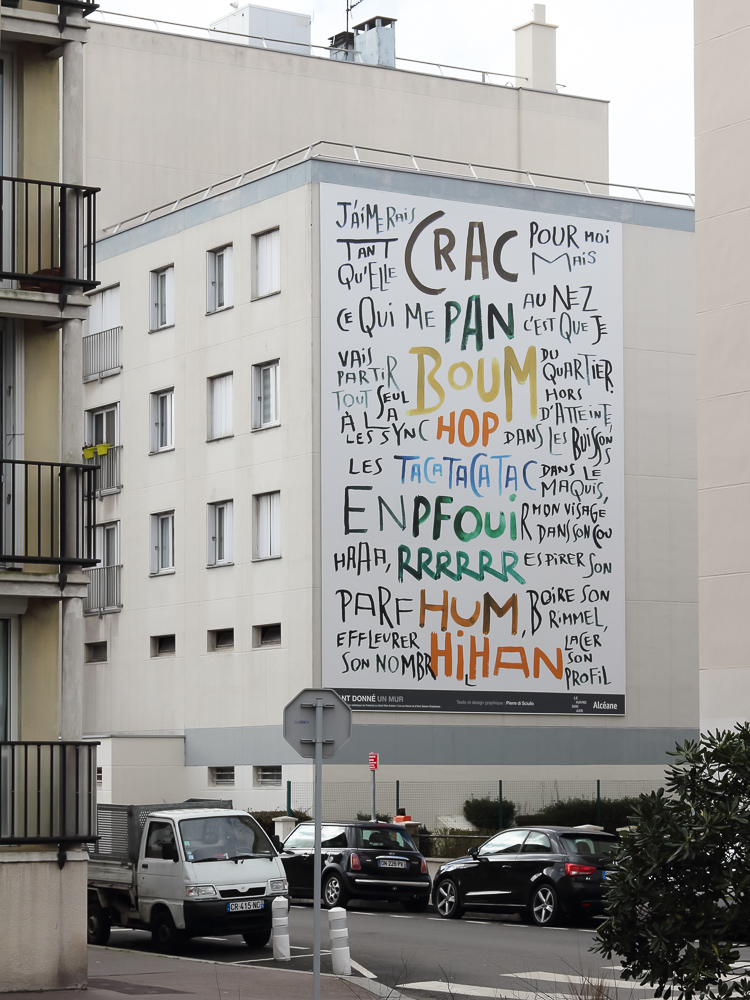 J'AIMERAIS CRAC POUR MOI
TANT MAIS
QU'ELLE
CE QUI ME PAN AU NEZ
C'EST QUE JE
VAIS BOUM DU
PARTIR QUARTIER
TOUT SEUL HORS
À LA D'ATTEINTE,
LES SYNC HOP DANS LES BUISSONS
LES TACATACATAC DANS LE
MAQUIS,
ENPFOUIR MON VISAGE
DANS SON COU
HAAA, RRRRRR ESPIRER SON
PARFHUM, BOIRE SON
RIMMEL,
EFFLEURER LACER
SON NOMBRHIHANL SON
PROFIL
ANT DONNÉ UN MUR
Texte et design graphique : Pierre di Sciullo
LE HAVRE
Alcéane
CR 415 NC